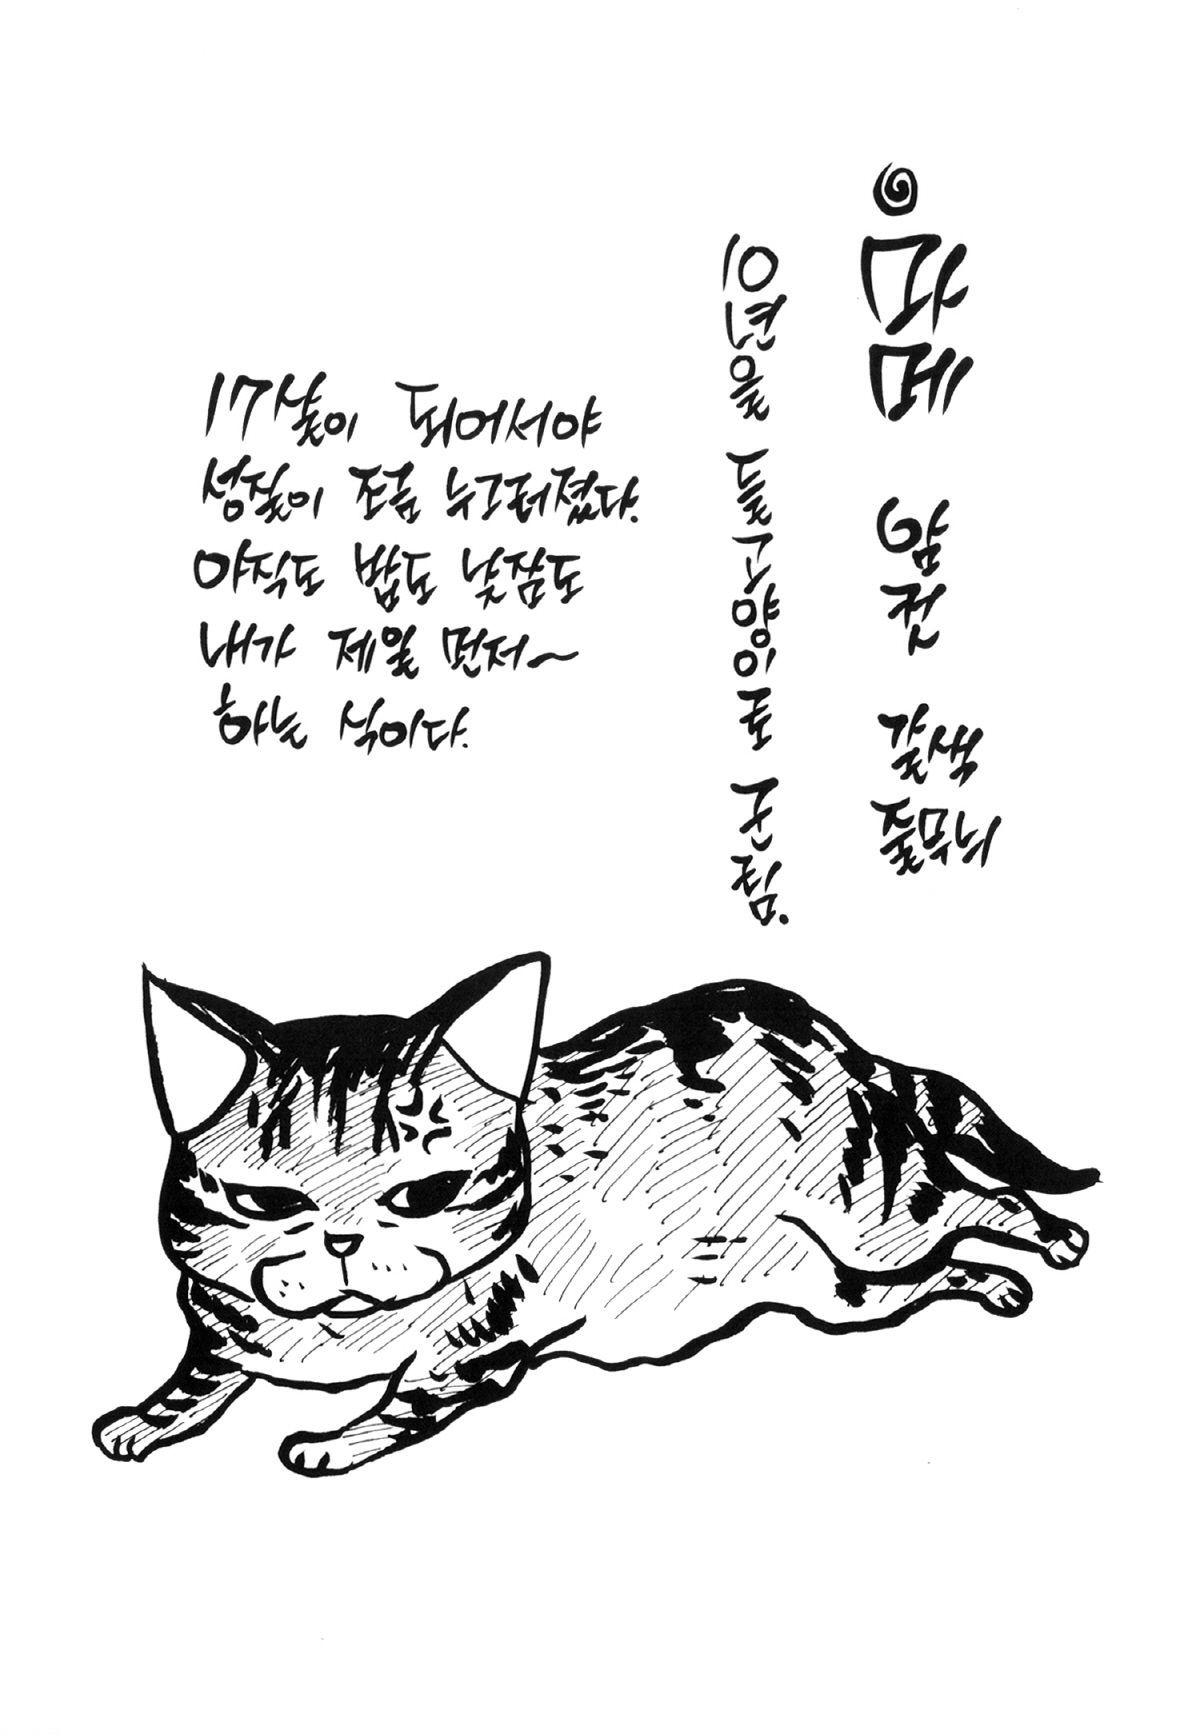 캄페 암컷 갈색 줄무늬
10년을 들고양이로 군림.
17살이 되어서야
성질이 조금 누그러졌다.
아직도 밥도 낮잠도
내가 제일 먼저~
하는 식이다.